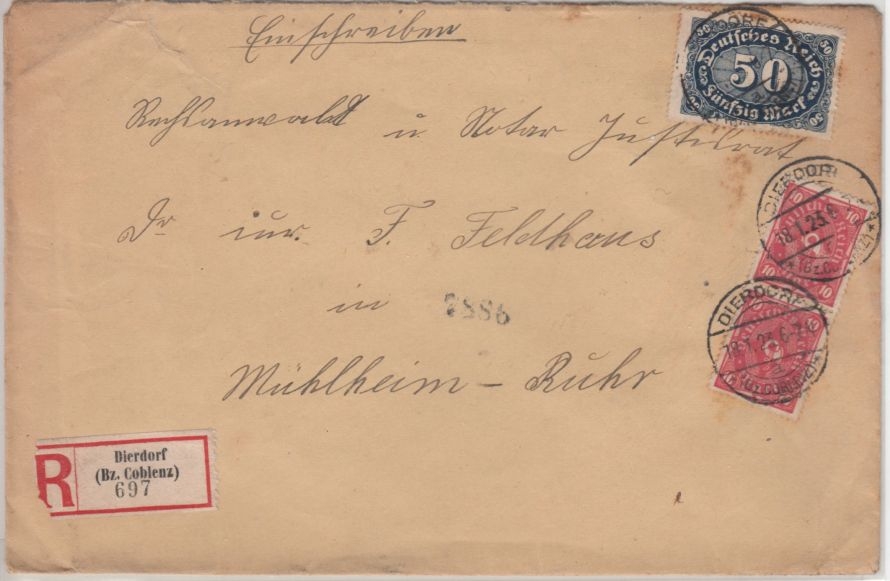 Einschreiben
Deutsches Reich
50
Fünfzig Mark
Rechtsanwalt u Notar Justizrat
Dr iur. F. Feldhaus
in
Mühlheim - Ruhr
7886
DIERDORF
18.1.23.6
10
10
10
10
DIERDORF
18.1.23.6-7
R
Dierdorf
(Bz. Coblenz)
697